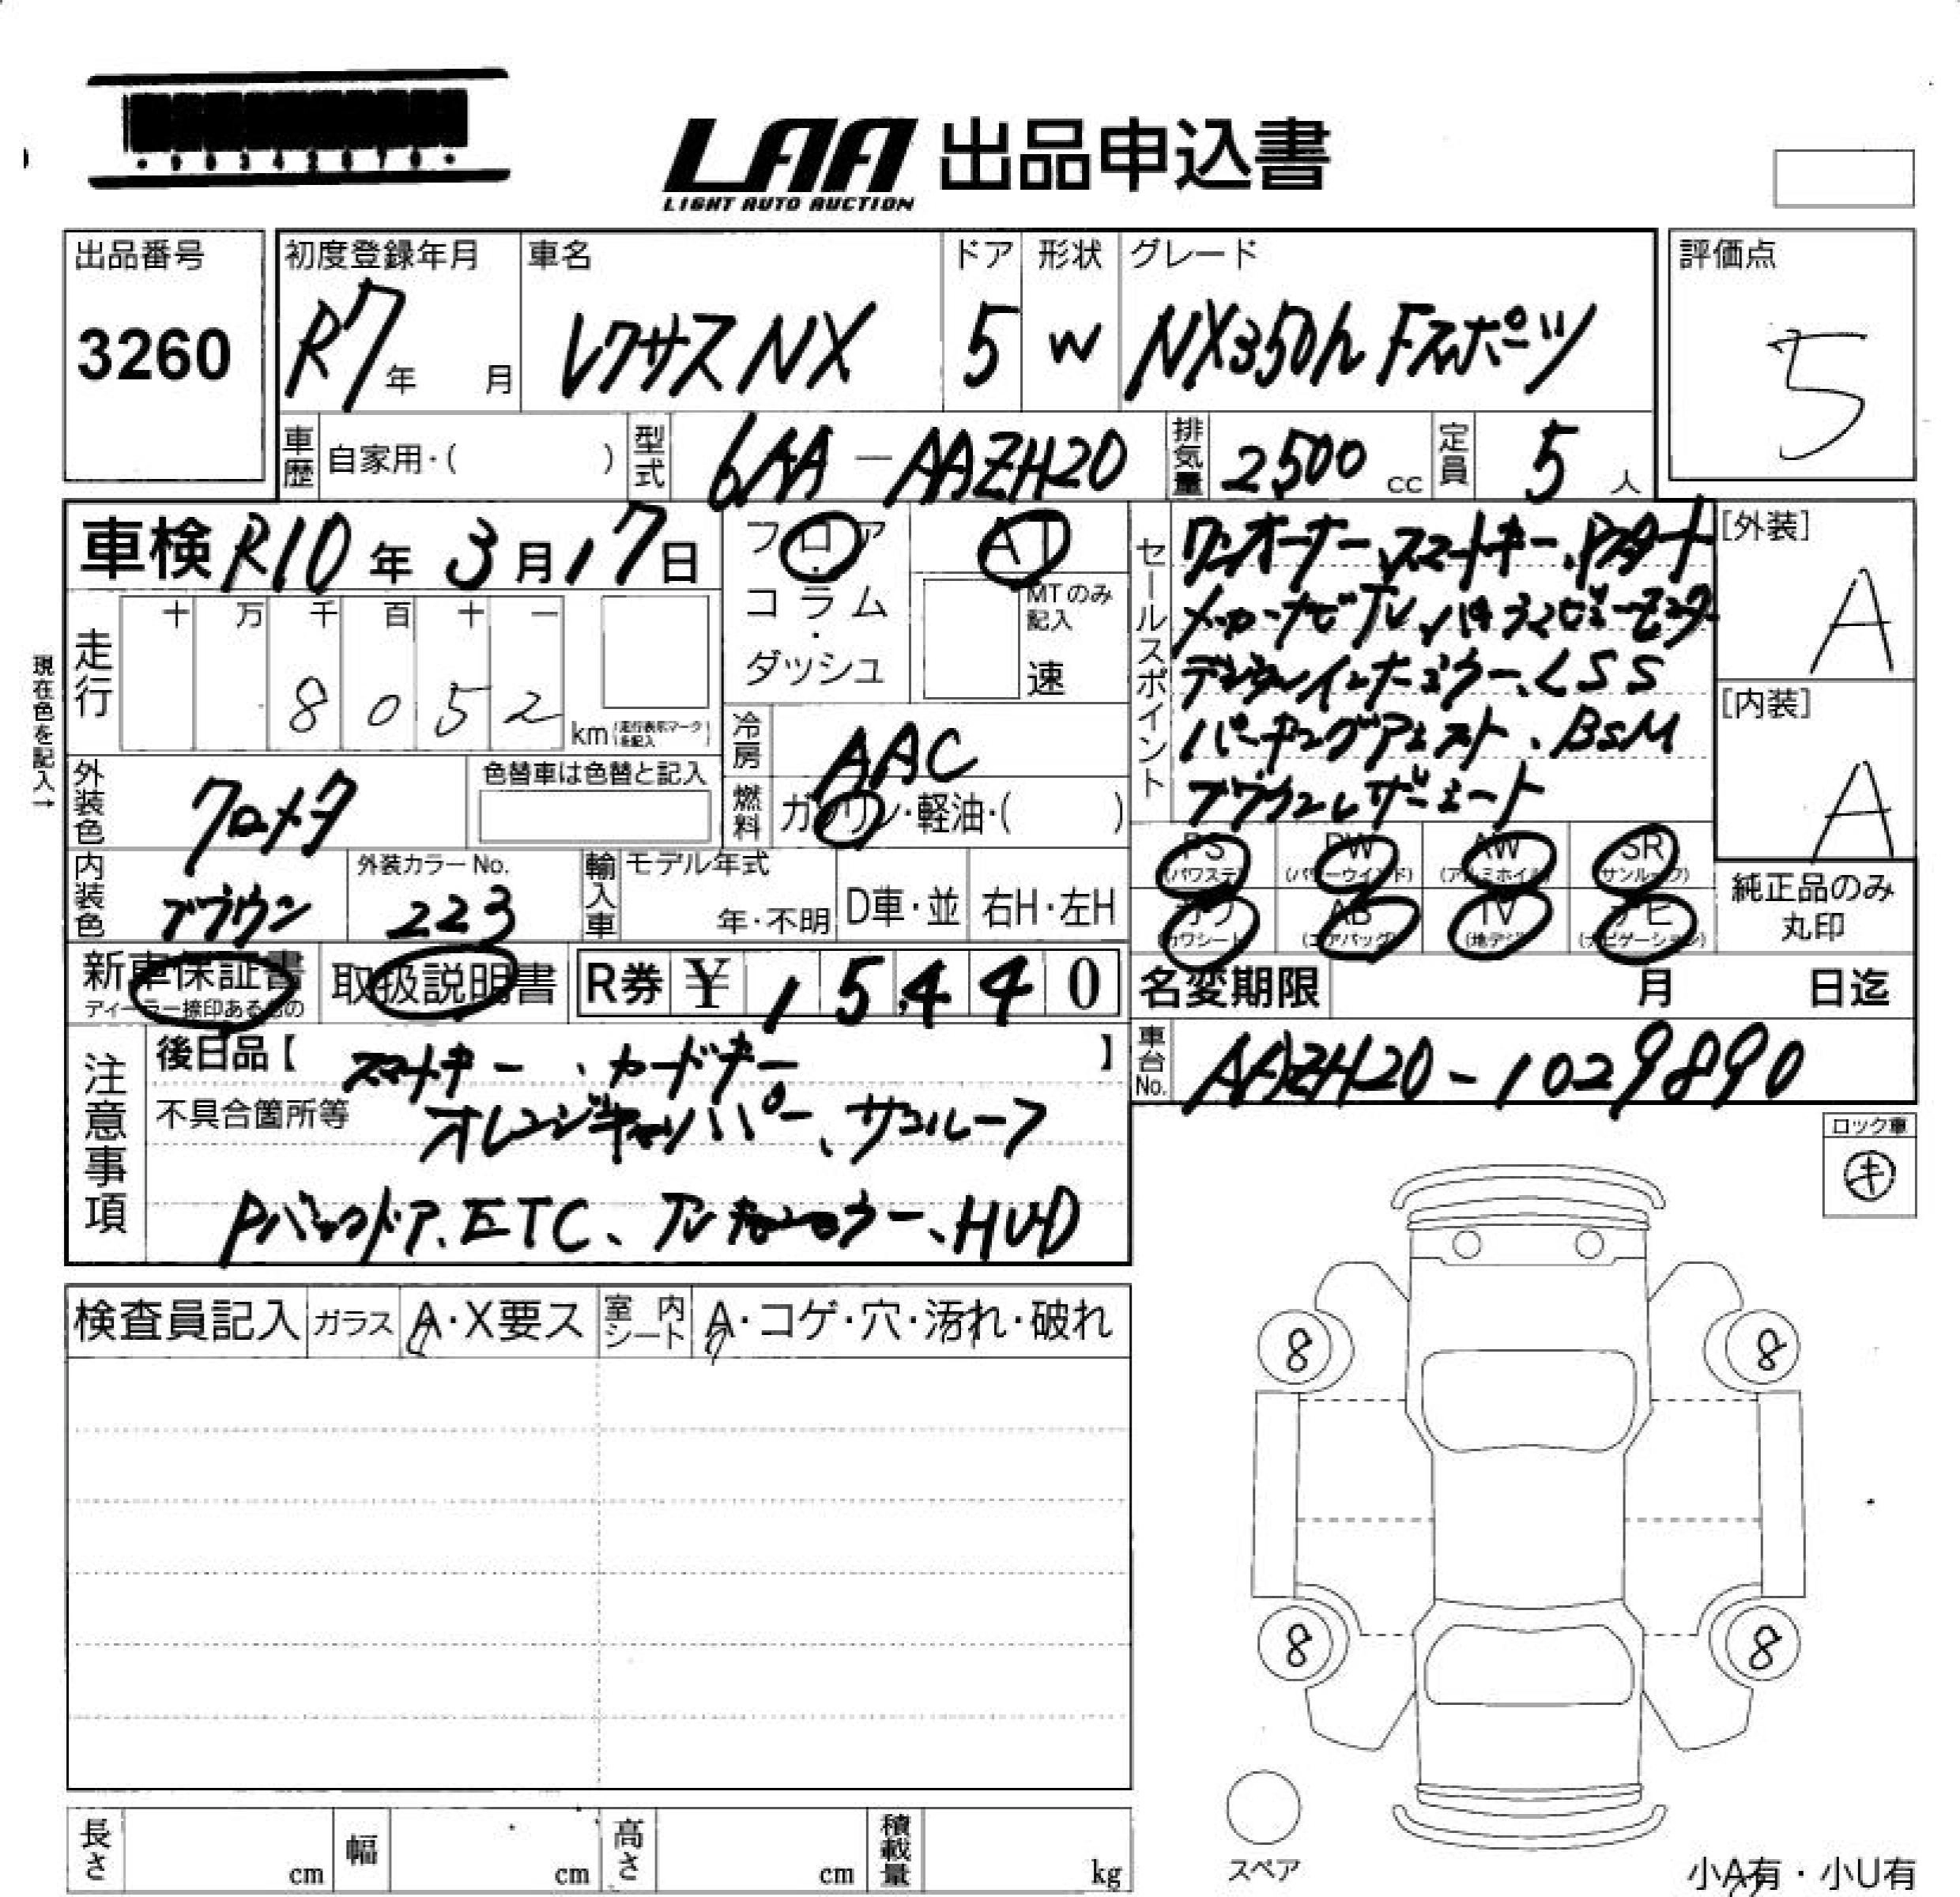 LAA 出品申込書
LIGHT AUTO AUCTION
出品番号
3260
初度登録年月
R7年 月
車名
レクサス NX
ドア
5
形状
W
グレード
NX350h Fスポーツ
評価点
5
車歴 自家用・( )
型式 6AA-AAZH20
排気量 2500 cc
定員 5 人
車検 R10年 3月17日
フロア
・
コラム
・
ダッシュ
AT
MTのみ記入
速
走行
十 万 千 百 十 一
8 0 5 2
km (走行表示マークを記入)
現在色を記入→
冷房 AAC
燃料 ガソリン・軽油・( )
外装色 クロメタ
色替車は色替と記入
内装色 ブラウン
外装カラーNo.
223
輸入車 モデル年式
年・不明
D車・並
右H・左H
セールスポイント
ワンオーナー、スマートキー、Pスタート
メーカーナビTV、パノラマビューモニター
デジタルインナーミラー、LSS
パーキングアシスト、BSM
ブラウンレザーシート
[外装]
A
[内装]
A
PS (パワステ)
PW (パワーウインド)
AW (アルミホイル)
SR (サンルーフ)
カワ (カワシート)
AB (エアバッグ)
TV (地デジ)
ナビ (ナビゲーション)
純正品のみ
丸印
新車保証書
ディーラー捺印あるもの
取扱説明書
R券 ¥ 15,440
名変期限 月 日迄
車台No. AAZH20-1029890
注意事項
後日品【スマートキー、カードキー】
不具合箇所等 オレンジキャリパー、サンルーフ
Pバックドア、ETC、アンビエントカラー、HUD
ロック車
キ
検査員記入
ガラス A・X要ス
室内シート A・コゲ・穴・汚れ・破れ
8
8
8
8
スペア
長さ cm
幅 cm
高さ cm
積載量 kg
小A有・小U有